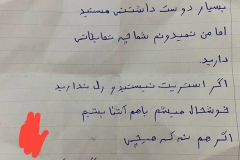 بسیار دوست داشتنی هستید
اما من نمیدونم شما چه تمایلاتی
دارید.
اگر استریت نیستید و رل ندارید
خوشحال میشم باهم آشنا بشیم
اگر هم نه که هیچی